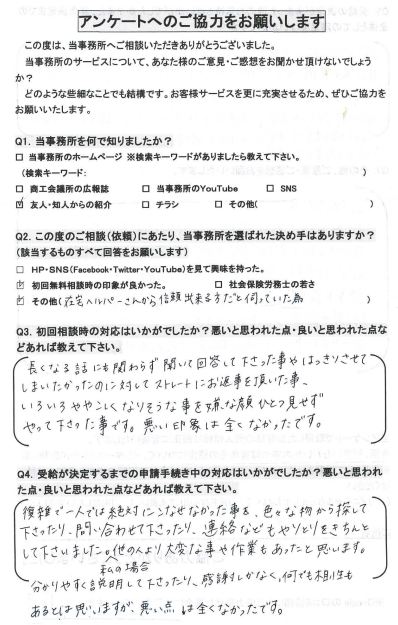 アンケートへのご協力をお願いします
この度は、当事務所へご相談いただきありがとうございました。
当事務所のサービスについて、あなた様のご意見・ご感想をお聞かせ頂けないでしょう
か？
どのような些細なことでも結構です。お客様サービスを更に充実させるため、ぜひご協力を
お願いいたします。
Q1. 当事務所を何で知りましたか？
□ 当事務所のホームページ ※検索キーワードがありましたら教えて下さい。
（検索キーワード： ）
□ 商工会議所の広報誌 □ 当事務所のYouTube □ SNS
☑ 友人・知人からの紹介 □ チラシ □ その他( )
Q2. この度のご相談（依頼）にあたり、当事務所を選ばれた決め手はありますか？
（該当するものすべて回答をお願いします）
□ HP・SNS（Facebook・Twitter・YouTube）を見て興味を持った。
☑ 初回無料相談時の印象が良かった。 □ 社会保険労務士の若さ
☑ その他(在宅ヘルパーさんから信頼出来る方だと伺っていた為 )
Q3. 初回相談時の対応はいかがでしたか？悪いと思われた点・良いと思われた点な
どあれば教えて下さい。
長くなる話にも関わらず聞いて回答して下さった事やはっきりさせて
しまいたかったのに対してストレートにお返事を頂いた事、
いろいろややこしくなりそうな事を嫌な顔ひとつ見せず
やって下さった事です。悪い印象は全くなかったです。
Q4. 受給が決定するまでの申請手続き中の対応はいかがでしたか？悪いと思われ
た点・良いと思われた点などあれば教えて下さい。
複雑で一人では絶対にこなせなかった事を、色々な物から探して
下さったり、問い合わせて下さったり、連絡などもやりとりをきちんと
して下さいました。他の人より大変な事や作業もあったと思います。
私の場合
分かりやすく説明して下さったり、感謝しかなく、何でも相性も
あるとは思いますが、悪い点は全くなかったです。